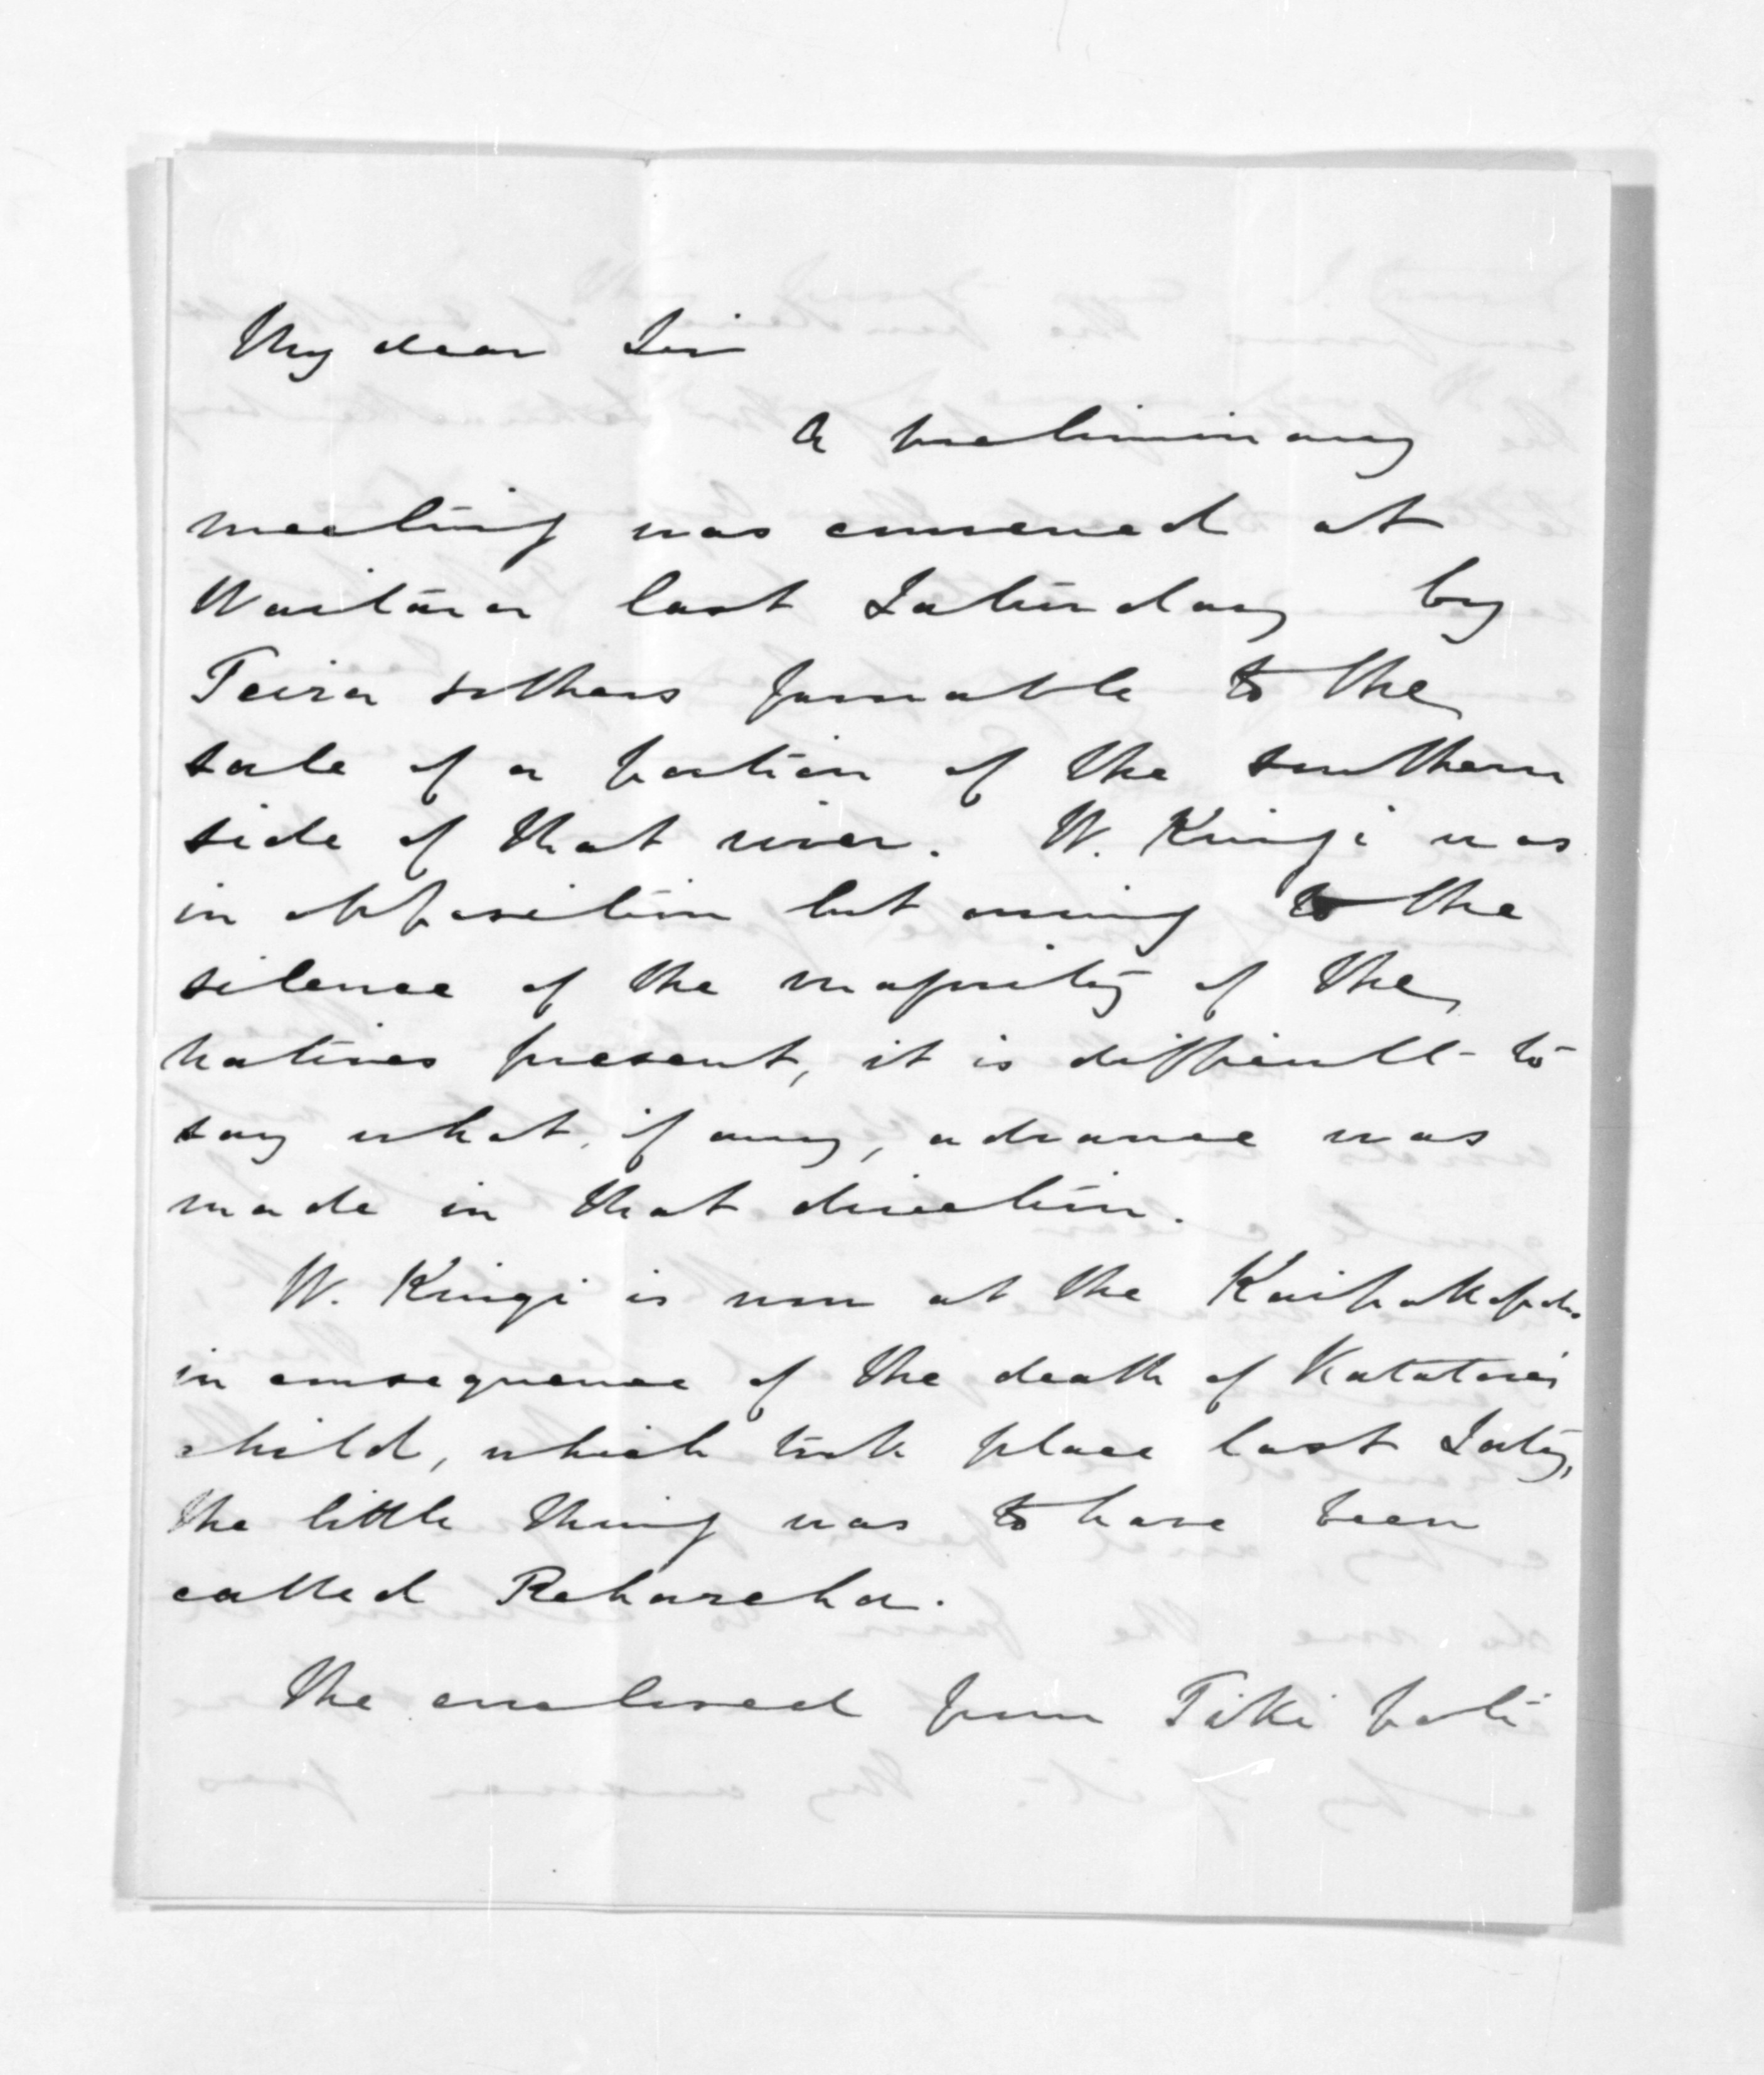 My dear Sir
A preliminary
meeting was convened at
Waitara last Saturday by
Teira & others favorable to the
sale of a portion of the southern
side of that river. W. Kingi was
in opposition but owing to the
silence of the majority of the
natives present, it is difficult to
say what, if any, advance was
made in that direction.
W. Kingi is now at the Kaipakopako
in consequence of the death of Katatore's
child, which took place last Saty,
the little thing was to have been
called Rehareha.
The enclosed from Tiki